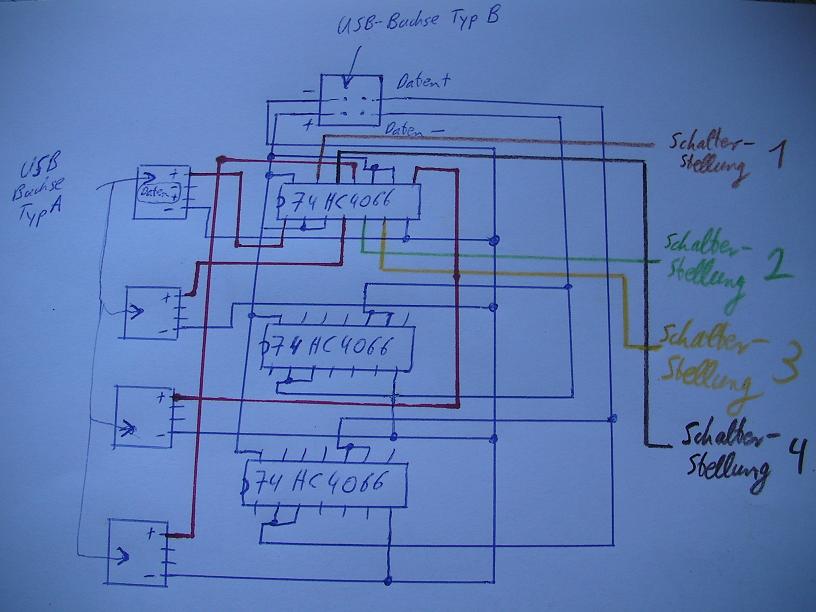 USB-Buchse Typ B
-
Daten+
+
Daten -
USB
Buchse
Typ A
+
Daten -
+
-
74 HC4066
Schalter-
Stellung 1
Schalter-
Stellung 2
+
-
74 HC4066
Schalter-
Stellung 3
+
-
Schalter-
Stellung 4
74 HC4066
+
-